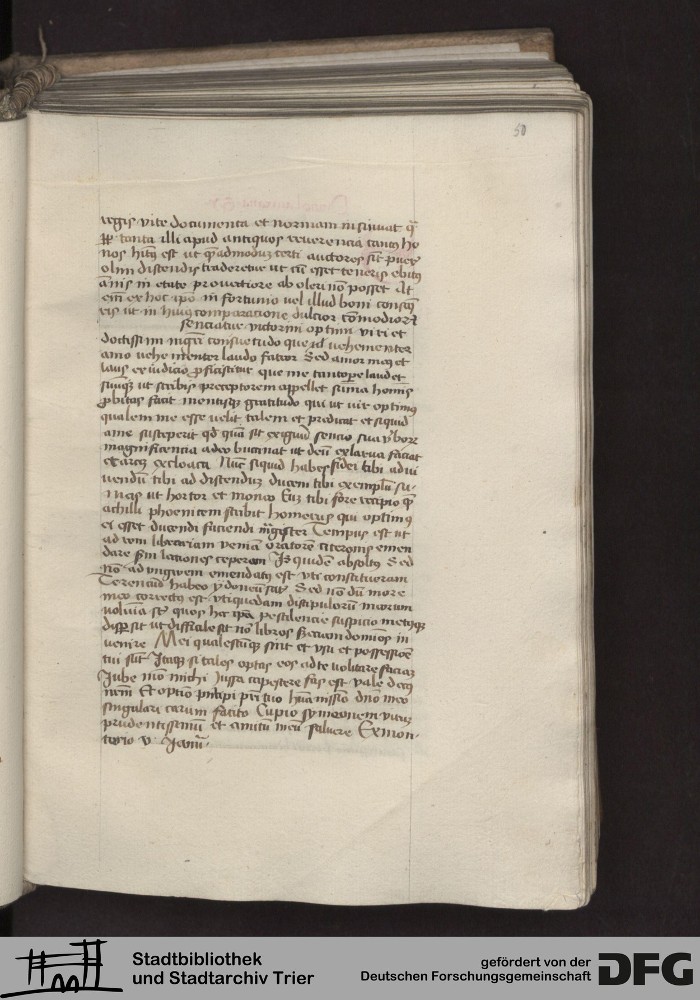 50
regis vite documenta et normam insinuat qͣ
ꝓp̄ tanta illi apud antiquos reuerencia tantꝯ ho
nos hītꝯ est ut qͣadmodū certi auctores sīt pueꝭ
olim distendis traderetur ut cū esset teneris
ānis in etate prouectiore aboleri nō posset At
em̄ ex hoc ip̄o infortunio uel illud boni
ris ut in huiꝯ comparacione dulcior comodioꝛ
senciatur victorini optimi viri et
doctissimi consuetudo que id vehementer
amo vehementer laudo fateor Sed amor meꝯ et
laus ex iudicio ꝓficiscitur que me tantoꝑe laudet
ut scribis preceptorem appellet suma homīs
ꝓbitas facit mentisqꝫ gratitudo qui ut vir optimꝯ
qualem me esse uelit talem et predicat et siquid
a me susceperit qd̄ qͣm sit exiguū sencio sua v̓boꝝ
magnificencia adeo buccinat ut
ex cloaca Nūc siquid habes fidei tibi adui
uendū tibi ad distendū ducem tibi exemplū su
meas ut hortor et moneo Eūz tibi fore recipio qͣ
achilli phoenicem scribit homerus qui optimꝯ
ei esset dicendi faciendi mgister Tempus est ut
ad rem librariam veniā oratorē Ciceronis emen
dare scdm lectiones ceperam Is quidē absoltꝯ Sed
nō ad vngwem emendatꝯ est vti constitueram
Terenciū habeo ydoneū Sed nō dū more
meo correctꝯ est vtiquedam discipuloꝝ meorum
volūīa sūt quos hec ip̄a pestilencie suspicio metusqꝫ
dispsit ut difficile sit nō libros s; eciam domīos in
uenire Mei qualescūqꝫ sint et vsu et possessiōe
tui sūt Itaqꝫ si tales optas eos ad te volitare faciaꝫ
Jube mō michi Jussa capescere fas est Vale decꝯ
meū Et optīo principi pri tuo dn̄o meo
singulari carum facito Cupio symeonem virum
prudentissimū et amicū meū saluere Ex mon
torio V Janu̅
Stadtbibliothek
und Stadtarchiv Trier
gefördert von der
Deutschen Forschungsgemeinschaft
DFG